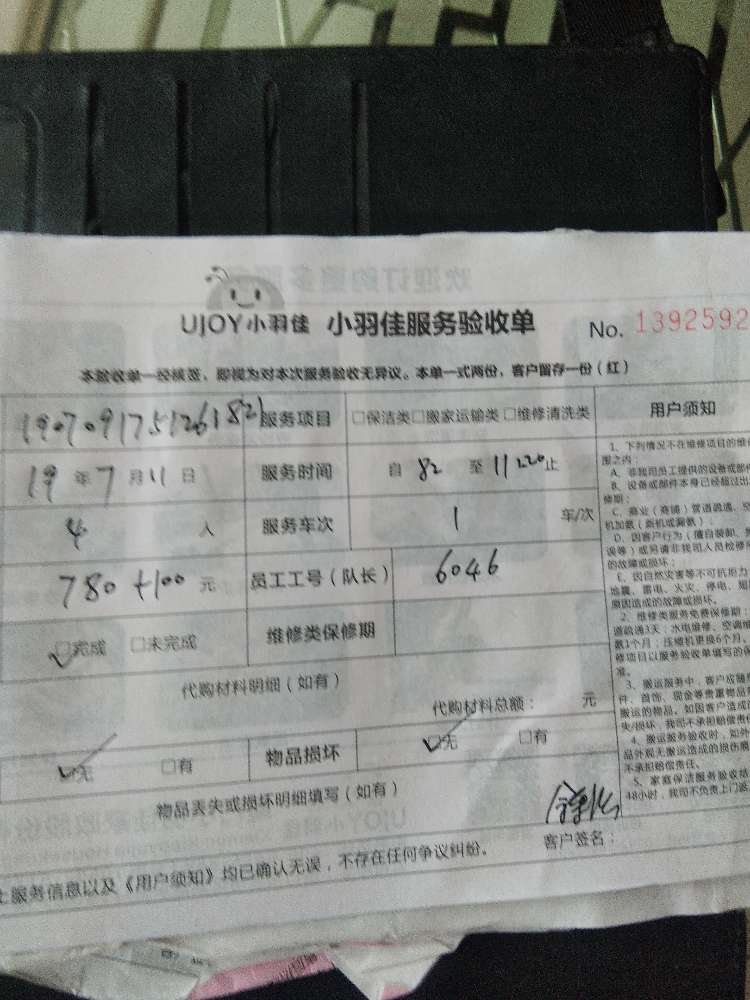 UJOY小羽佳 小羽佳服务验收单 No. 1392592
本验收单一经核签，即视为对本次服务验收无异议。本单一式两份，客户留存一份（红）
服务项目 □保洁类□搬家运输类□维修清洗类
19年7月11日 服务时间 自 82 至 11 220止
4 人 服务车次 1 车/次
780+100 元 员工工号（队长） 6046
□完成 □未完成 维修类保修期
代购材料明细（如有）
代购材料总额： 元
□无 □有 物品损坏 □无 □有
物品丢失或损坏明细填写（如有）
客户签名：
服务信息以及《用户须知》均已确认无误，不存在任何争议纠纷。
用户须知
1、下列情况不在维修项目的维
围之内：
A、非我司员工提供的设备或部件
B、设备或部件本身已经超过出
修期；
C、商业（商铺）管道疏通、空
机加氨（新机或漏氨）；
D、因客户行为（擅自装卸、
误等）或另请非我司人员检修
的故障或损坏；
E、因自然灾害等不可抗拒力
地震、雷电、火灾、停电、
原因造成的故障或损坏。
2、维修类服务免费保修期：
道疏通3天；水电维修、空调
数1个月；压缩机更换6个月，
修项目以服务验收单填写的保
准。
3、搬运服务中，客户应随
件、首饰、现金等贵重物品
搬运的物品。如因客户造成
失/损坏，我司不承担赔偿责
4、搬运服务验收时，如外
品外观无搬运造成的损伤
不承担赔偿责任。
5、家庭保洁服务验收
48小时，我司不负责上门返